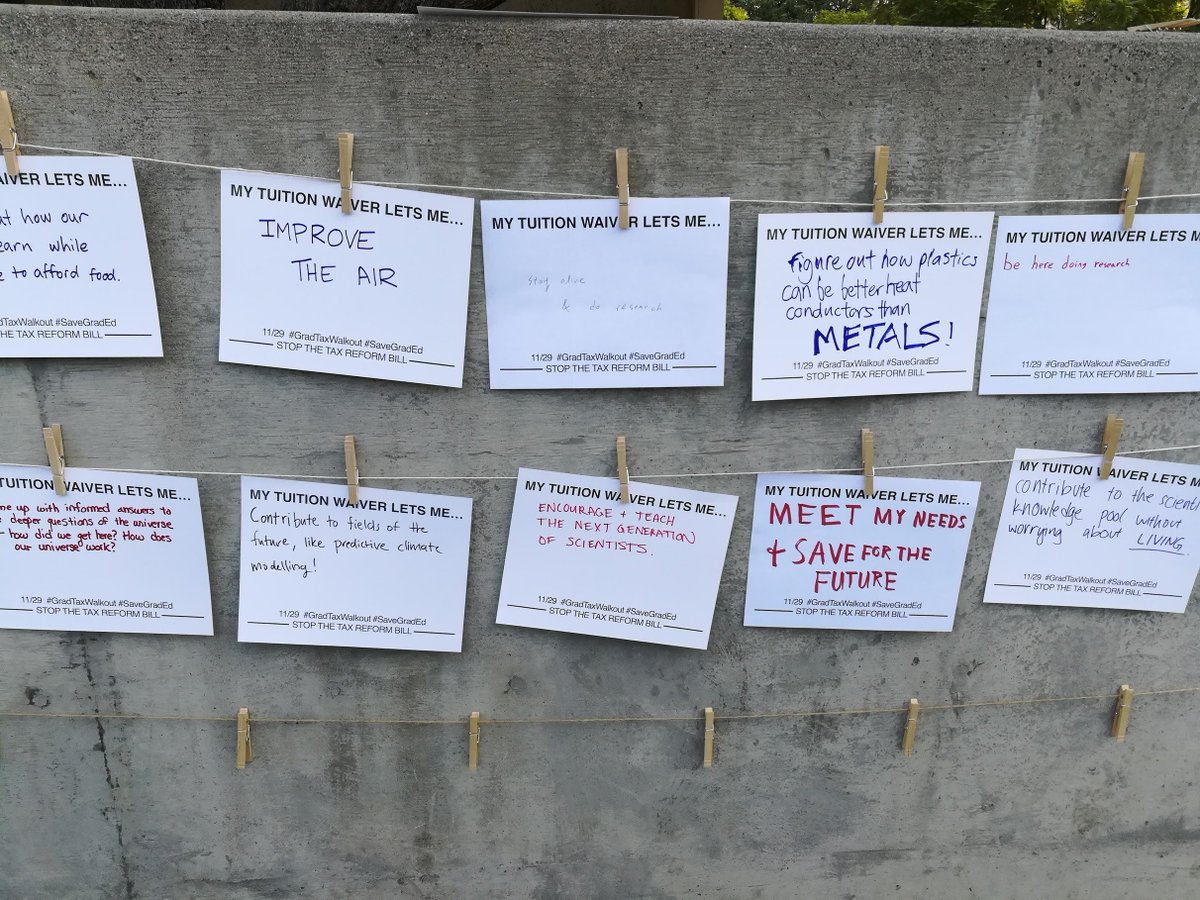 WAIVER LETS ME...
at how our
earn while
e to afford food.
adTaxWalkout #SaveGradEd
THE TAX REFORM BILL
MY TUITION WAIVER LETS ME...
IMPROVE
THE AIR
11/29 #GradTaxWalkout #SaveGradEd
STOP THE TAX REFORM BILL
MY TUITION WAIVER LETS ME...
stay alive
& do research
11/29 #GradTaxWalkout #SaveGradEd
STOP THE TAX REFORM BILL
MY TUITION WAIVER LETS ME...
figure out how plastics
can be better heat
conductors than
METALS!
11/29 #GradTaxWalkout #SaveGradEd
STOP THE TAX REFORM BILL
MY TUITION WAIVER LETS M
be here doing research
11/29 #GradTaxWalkout #SaveGradEd
STOP THE TAX REFORM BILL
TUITION WAIVER LETS ME...
me up with informed answers to
e deeper questions of the universe
- how did we get here? How does
our universe work?
11/29 #GradTaxWalkout #SaveGradEd
STOP THE TAX REFORM BILL
MY TUITION WAIVER LETS ME...
Contribute to fields of the
future, like predictive climate
modelling!
11/29 #GradTaxWalkout #SaveGradEd
STOP THE TAX REFORM BILL
MY TUITION WAIVER LETS ME...
ENCOURAGE + TEACH
THE NEXT GENERATION
OF SCIENTISTS.
11/29 #GradTaxWalkout #SaveGradEd
STOP THE TAX REFORM BILL
MY TUITION WAIVER LETS ME...
MEET MY NEEDS
+ SAVE FOR THE
FUTURE
11/29 #GradTaxWalkout #SaveGradEd
STOP THE TAX REFORM BILL
MY TUITION WAIVER LETS ME...
contribute to the scienti
knowledge pool without
worrying about LIVING
11/29 #GradTaxWalkout #SaveGradEd
STOP THE TAX REFORM BILL